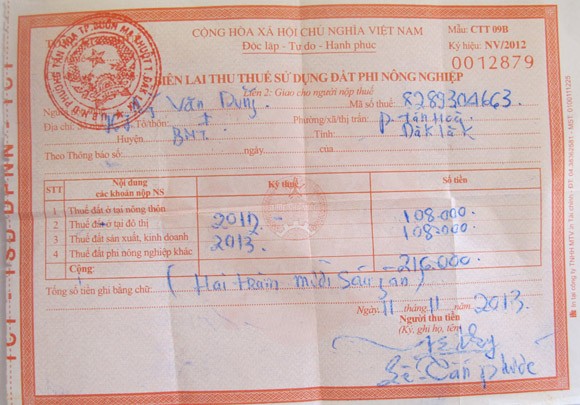 CỘNG HÒA XÃ HỘI CHỦ NGHĨA VIỆT NAM
Độc lập - Tự do - Hạnh phúc
Mẫu: CTT 09B
Ký hiệu: NV/2012
0012879
BIÊN LAI THU THUẾ SỬ DỤNG ĐẤT PHI NÔNG NGHIỆP
Liên 2: Giao cho người nộp thuế
Văn Dũng Mã số thuế: 8289304663
Địa chỉ: Tổ/thôn: 7 Phường/xã/thị trấn: P. Tân Hoà
Huyện: BMT. Tỉnh: Đăk lăk
Theo Thông báo số: ngày của
STT Nội dung các khoản nộp NS Kỳ thuế Số tiền
1 Thuế đất ở tại nông thôn
2 Thuế đất ở tại đô thị 2012 - 108.000.
3 Thuế đất sản xuất, kinh doanh 2013. 108.000.
4 Thuế đất phi nông nghiệp khác
Cộng: 216.000.
Tổng số tiền ghi bằng chữ: (Hai trăm mười Sáu ngàn)
Ngày 11 tháng 11 năm 2013
Người thu tiền
(Ký, ghi họ, tên)